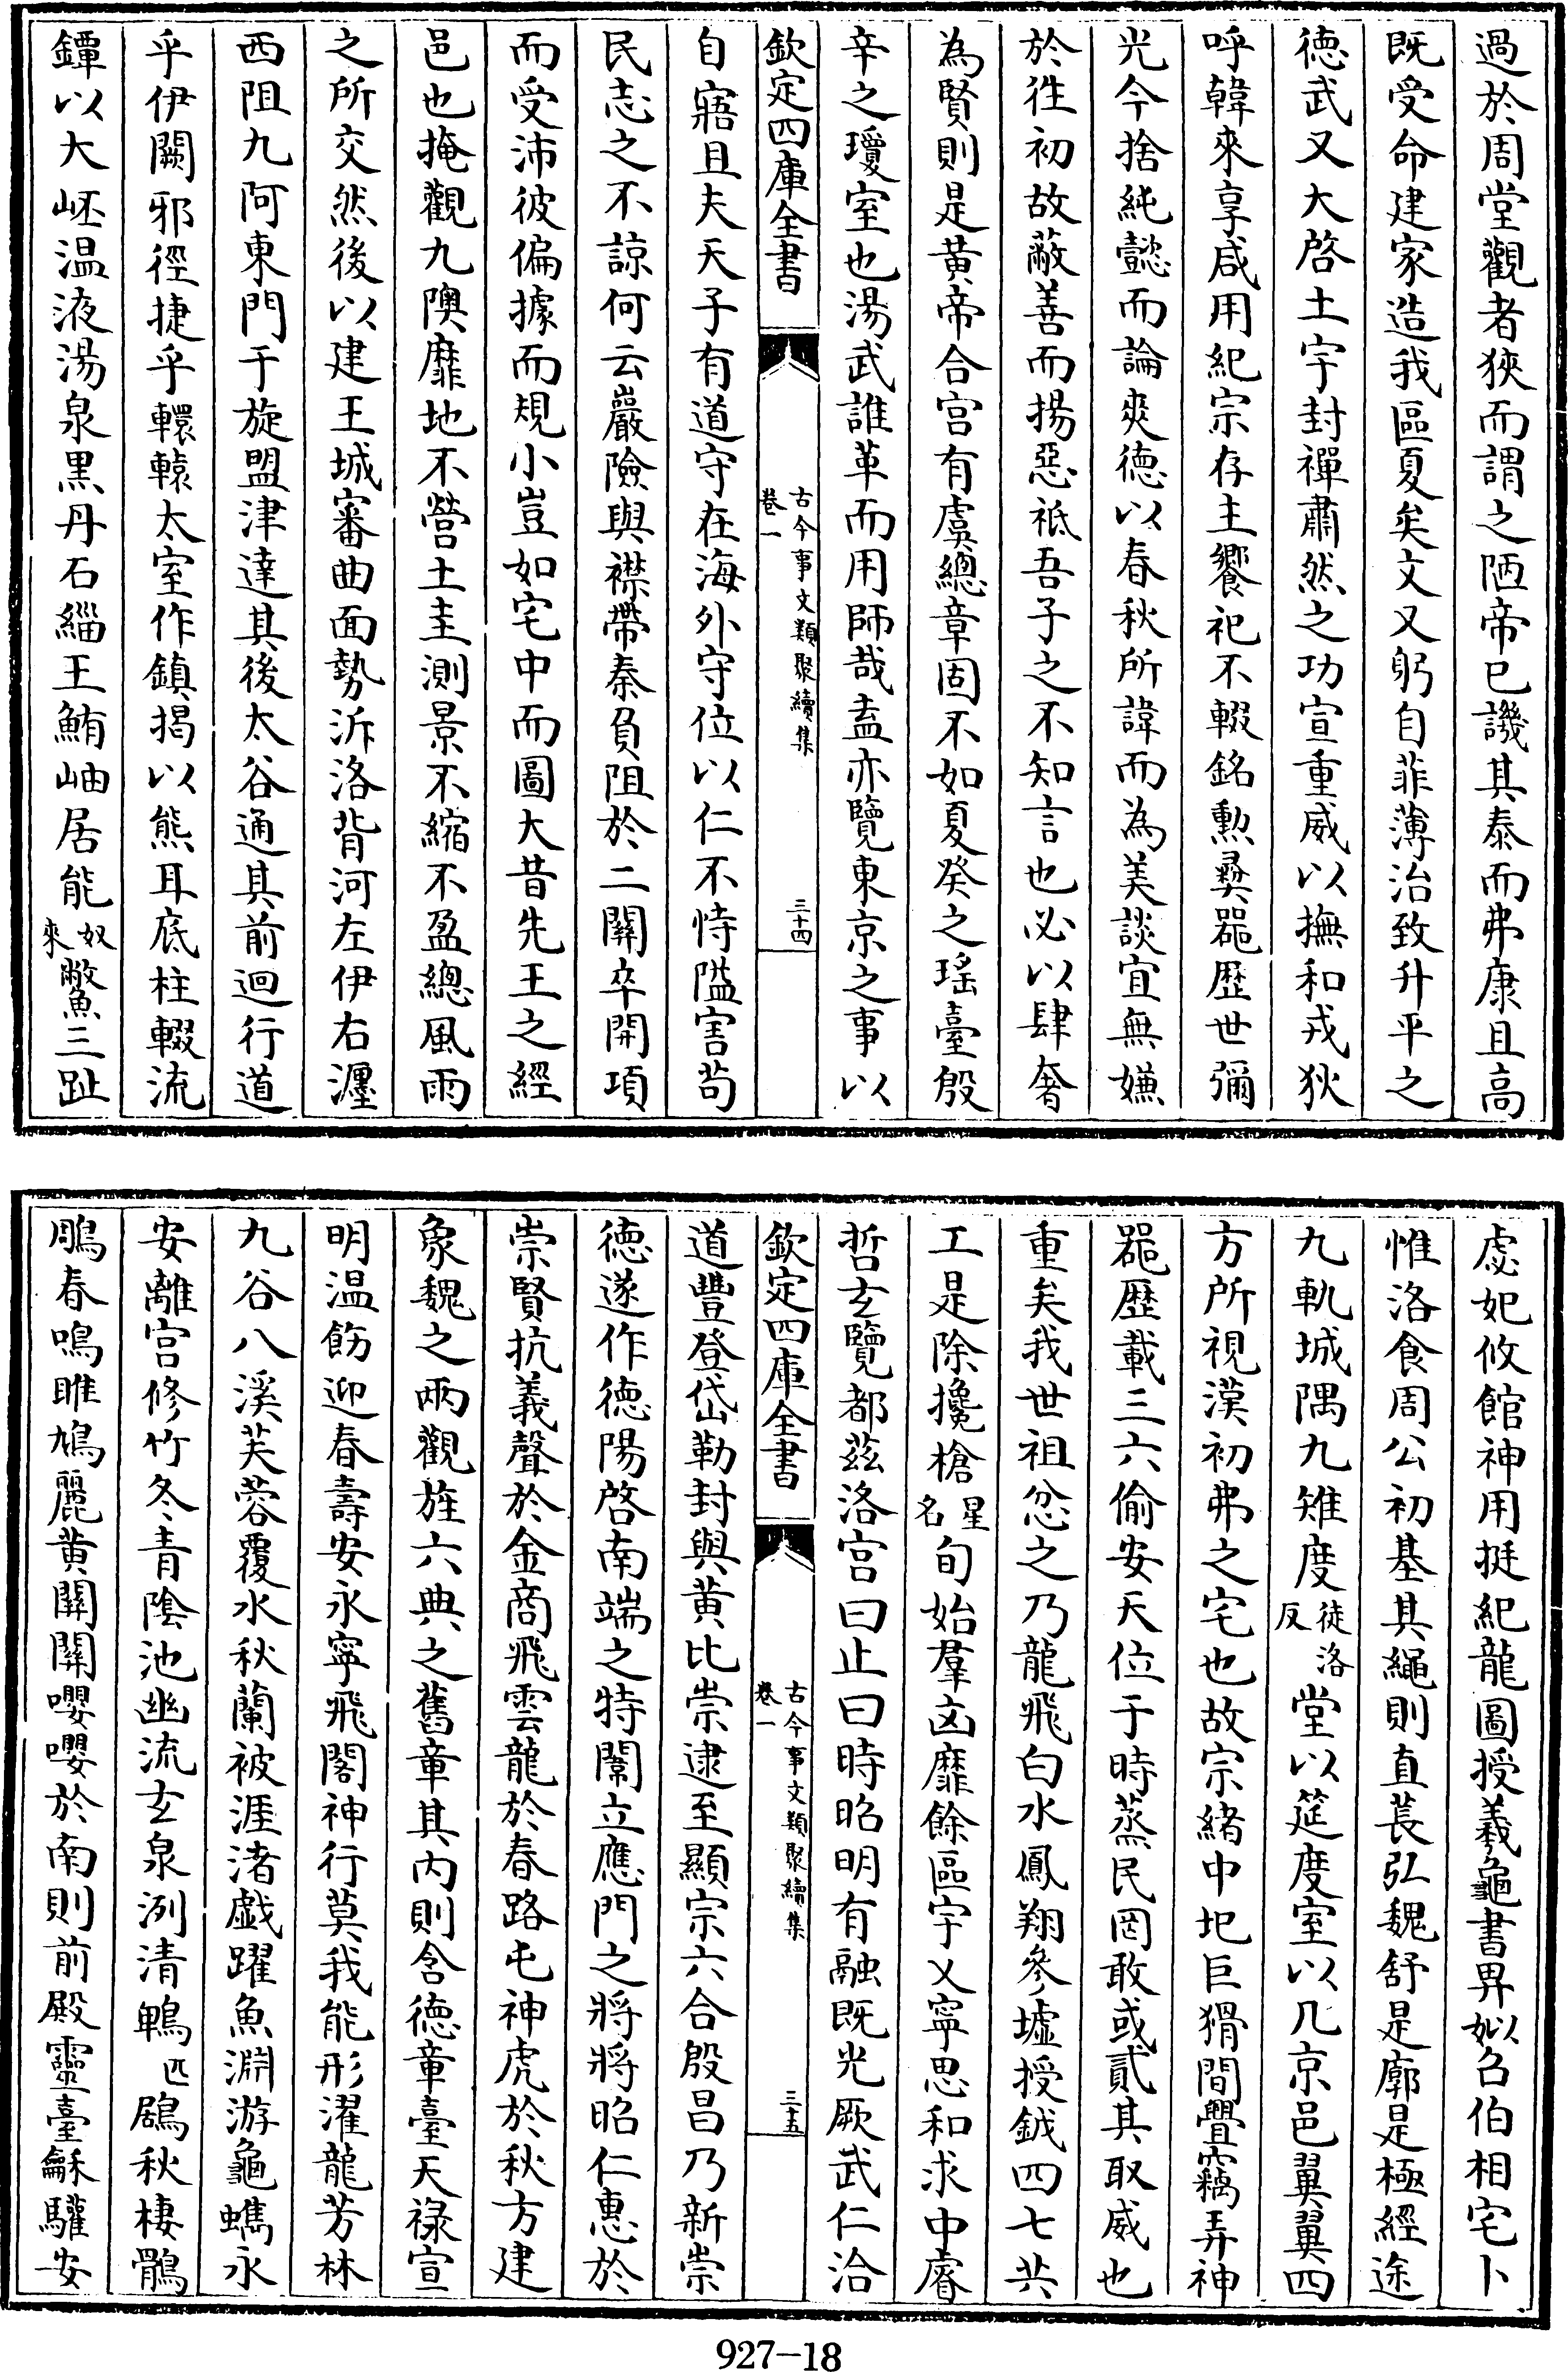 過於周堂觀者狹而謂之陋帝已譏其泰而弗康且高
既受命建家造我區夏矣文又躬自菲薄治致升平之
德武又大啓土宇封禪肅然之功宣重威以撫和戎狄
呼韓來享咸用紀宗存主饗祀不輟銘勲彞器歴世彌
光今捨純懿而論爽德以春秋所諱而為美談宜無嫌
於徃初故蔽善而揚惡祗吾子之不知言也必以肆奢
為賢則是黄帝合宫有虞總章固不如夏癸之瑶臺殷
辛之瓊室也湯武誰革而用師哉盍亦覽東京之事以
欽定四庫全書
古今事文類聚續集
卷一
三十四
自寤且夫天子有道守在海外守位以仁不恃隘害苟
民志之不諒何云巖險與襟帶秦負阻於二關卒開項
而受沛彼偏據而規小豈如宅中而圖大昔先王之經
邑也掩觀九隩靡地不營土圭測景不縮不盈總風雨
之所交然後以建王城審曲面勢泝洛背河左伊右瀍
西阻九阿東門于旋盟津達其後太谷通其前迴行道
乎伊闕邪徑捷乎轘轅太室作鎮揭以熊耳底柱輟流
鐔以大岯温液湯泉黒丹石緇王鮪岫居能奴來鱉三趾
虙妃攸館神用挺紀龍圖授羲龜書畀姒召伯相宅卜
惟洛食周公初基其繩則直萇弘魏舒是廓是極經途
九軌城隅九雉度徒洛反堂以筵度室以几京邑翼翼四
方所視漢初弗之宅也故宗緒中圮巨猾間舋竊弄神
器歴載三六偷安天位于時蒸民罔敢或貳其取威也
重矣我世祖忿之乃龍飛白水鳳翔參墟授鉞四七共
工是除攙槍星名旬始羣凶靡餘區宇乂寧思和求中睿
哲玄覽都茲洛宫曰止曰時昭明有融既光厥武仁洽
欽定四庫全書
古今事文類聚續集
卷一
三十五
道豐登岱勒封與黄比崇逮至顯宗六合殷昌乃新崇
德遂作德陽啓南端之特闈立應門之將將昭仁惠於
崇賢抗義聲於金商飛雲龍於春路屯神虎於秋方建
象魏之兩觀旌六典之舊章其内則含德章臺天禄宣
明温飭迎春壽安永寧飛閣神行莫我能形濯龍芳林
九谷八溪芙蓉覆水秋蘭被涯渚戯躍魚淵游龜蠵永
安離宫修竹冬青隂池幽流玄泉洌清鵯匹鶋秋棲鶻
鵰春鳴雎鳩麗黄關關嚶嚶於南則前殿靈臺龢驩安
927—18